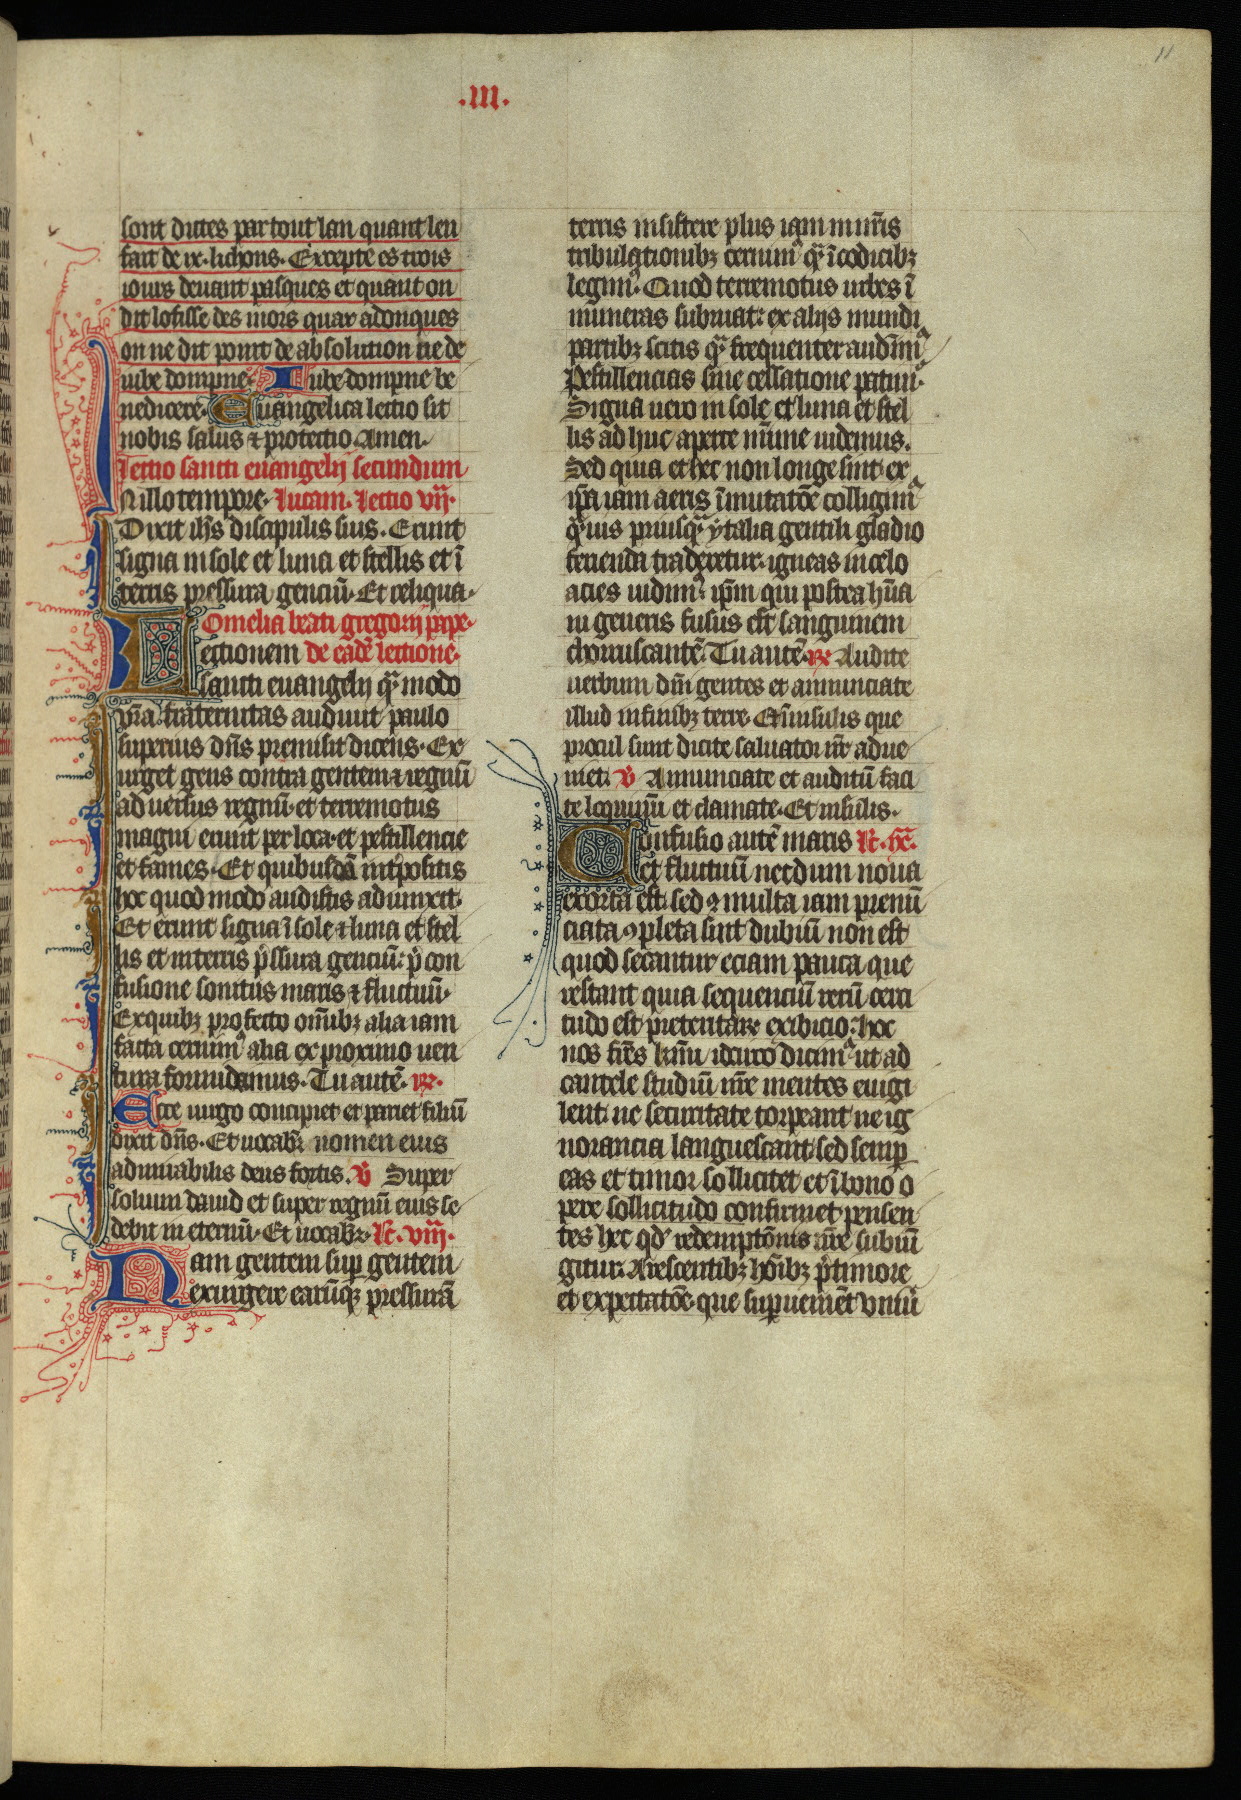 .III.
11
sont dictes par tout lan quant len
fait de ix. lichons. Excepte es trois
iours deuant pasques et quant on
dit lofisse des mors quar adonques
on ne dit point de absolution ne de
iube dompne. Iube dompne be
nedicere. Euangelica lectio sit
nobis salus ⁊ protectio Amen.
Lectio sancti euangelij secundum
N illo tempore. Lucam. Lectio vij.
Dixit ih̄s discipulis suis. Erunt
signa in sole et luna et stellis et ī
terris pressura genciū. Et reliqua.
Omelia beati gregorij pape.
Lectionem de eadē lectione.
sancti euangelij qͣ modo
vr̄a fraternitas audiuit paulo
superius dn̄s premisit dicens. Ex
urget gens contra gentem ⁊ regnū
aduersus regnū. et terremotus
magni erunt per loca. et pestillencie
et fames. Et quibusdā int̉positis
hoc quod modo audistis adiunxit.
Et erunt signa ī sole ⁊ luna et stel
lis et in terris p̄ssura genciū: p̄ con
fusione sonitus maris ⁊ fluctuū.
Ex quibꝫ profecto om̄ibꝫ alia iam
facta cernimꝰ alia ex proximo uen
tura formidamus. Tu autē. ℟.
Ecce uirgo concipiet et pariet filiū
dixit dn̄s. Et uocabit̉ nomen eius
admirabilis deus fortis. ℣ Super
solium dauid et super regnū eius se
debit in eternū. Et uocab̄r. Lc̄. viij.
Nam gentem suꝑ gentem
exurgere earūqꝫ pressurā
terris insistere plus iam in nr̄is
tribulationibꝫ cernimꝰ qͣ ī codicibꝫ
legimꝰ. Quod terremotus urbes ī
numeras subruat: ex alijs mundi
partibꝫ scitis qͣ frequenter audiuimꝰ
Pestillencias sine cessatione patimꝰ.
Signa uero in sole et luna et stel
lis ad huc aperte minime uidemus.
Sed quia et hec non longe sint ex
ip̄a iam aeris īmutatōe colligimꝰ
qͣuis priusqͣ ytalia gentili gladio
ferienda traderetur. igneas in celo
acies uidimꝰ ip̄m qui postea hūa
ni generis fusus est sanguinem
choruscantē. Tu autē. ℟ Audite
uerbum dn̄i gentes et annunciate
illud in finibꝫ terre. Et in insulis que
procul sunt dicite saluator nr̄ adue
niet. ℣ Annunciate et auditū faci
te loquimī et clamate. Et in insulis.
Confusio autē maris Lc̄. ix̄.
et fluctuū necdum noua
exorta est. sed ꝯ multa iam prenū
ciata ꝯpleta sint dubiū non est
quod secantur eciam pauca que
restant quia sequenciū rerū certi
tudo est preteritarū exibicio: hoc
nos fr̄es kmī idcirco dicimꝰ ut ad
cautele studiū nr̄e mentes euigi
lent: ne securitate torpeant ne ig
norancia languescant. sed semꝑ
eas et timor sollicitet et ī bono o
pere sollicitudo confirmet pensen
tes hec qd̉ redemptōnis nr̄e subiū
gitur. Arescentibꝫ hōibꝫ p̄ timore
et expectatōe. que suꝑuenient vniū